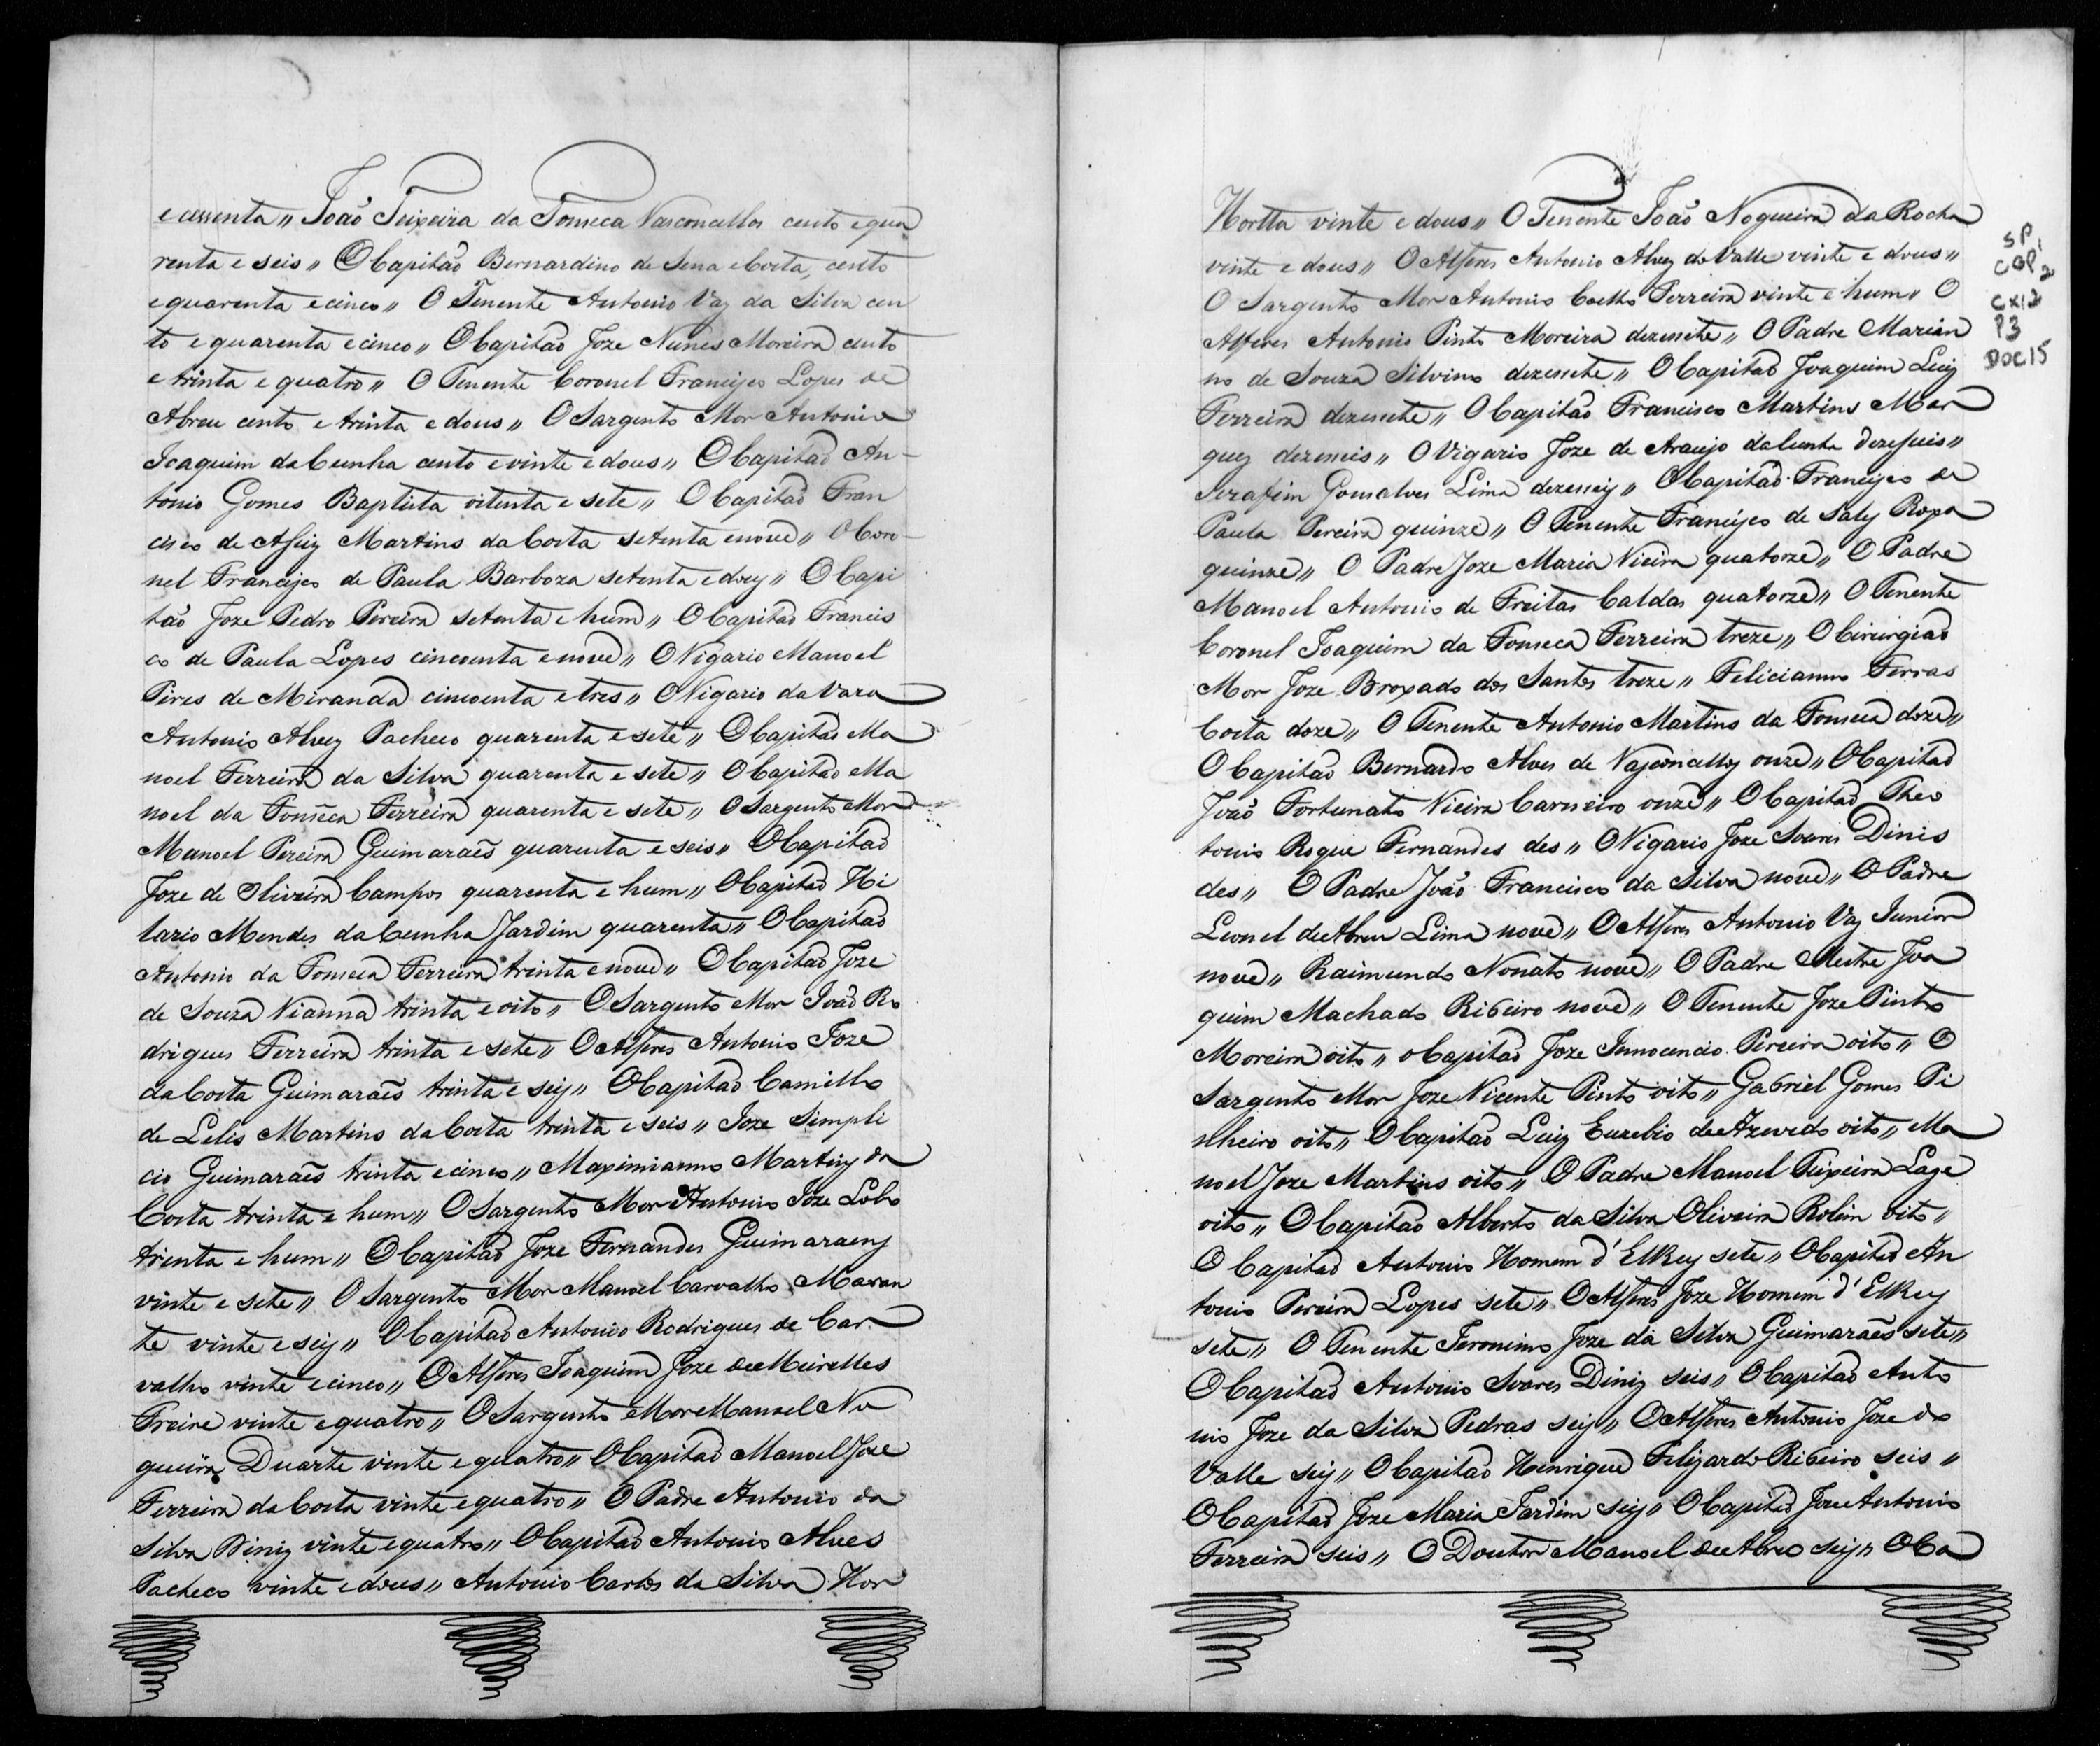 e cessenta,, João Teixeira da Fonseca Vasconcellos cento equa
renta e seis,, O Capitão Bernardino de Sena e Costa, cento
equarenta ecinco,, O Tenente Antonio Vaz da Silva cen
to e quarenta ecinco,, O Capitão Joze Nunes Moreira cento
e trinta e quatro,, O Tenente Coronel Francisco Lopes de
Abreu cento e trinta e dous,, O Sargento Mor Antonio
Joaquim da Cunha cento e vinte e dous,, O Capitão An-
tonio Gomes Baptista oitenta e sete,, O Capitão Fran
cisco de Assiz Martins da Costa setenta enove,, O Coro-
nel Francisco de Paula Barboza setenta edoes,, O Capi
tão Joze Pedro Pereira setenta e hum,, O Capitão Francis
co de Paula Lopes cincoenta enove,, O Vigario Manoel
Pires de Miranda cincoenta e tres,, O Vigario da Vara
Antonio Alvez Pacheco quarenta e sete,, O Capitão Ma
noel Ferreira da Silva quarenta e sete,, O Capitão Ma
noel da Fonseca Ferreira quarenta e sete,, O Sargento Mor
Manoel Pereira Guimaraẽs quarenta e seis,, O Capitão
Joze de Oliveira Campos quarenta e hum,, O Capitão Hi
lario Mendes da Cunha Jardim quarenta,, O Capitão
Antonio da Fonseca Ferreira trinta enove,, O Capitão Joze
de Souza Vianna trinta e oito,, O Sargento Mor João Ro
drigues Ferreira trinta e sete,, O Alferes Antonio Joze
da Costa Guimaraẽs trinta e seis,, O Capitão Camillo
de Lelis Martins da Costa trinta e seis,, Joze Simpli
cio Guimaraẽs trinta ecinco,, Maximianno Martins da
Costa trinta e hum,, O Sargento Mor Antonio Joze Lobo
trinta e hum,, O Capitão Joze Fernandes Guimaraens
vinte e sete,, O Sargento Mor Manoel Carvalho Moran
te vinte e seis,, O Capitão Antonio Rodrigues de Car
valho vinte ecinco,, O Alferes Joaquim Joze de Meirelles
Freire vinte equatro,, O Sargento Mor Manoel No
gueira Duarte vinte equatro,, O Capitão Manoel Joze
Ferreira da Costa vinte equatro,, O Padre Antonio da
Silva Diniz vinte equatro,, O Capitão Antonio Alves
Pacheco vinte edous,, Antonio Carlos da Silva Hor
Hortta vinte edous,, O Tenente João Nogueira da Rocha
vinte edous,, O Alferes Antonio Alvez do Valle vinte e dous,,
O Sargento Mor Antonio Coelho Ferreira vinte e hum,, O
Alferes Antonio Pinto Moreira dezessete,, O Padre Marian
no de Souza Silvino dezessete,, O Capitão Joaquim Luiz
Ferreira dezessete,, O Capitão Francisco Martins Mar
quez dezesseis,, O Vigario Joze de Araujo da Cunha dezeseis,,
Serafim Gonsalves Lima dezesseis,, O Capitão Francisco de
Paula Pereira quinze,, O Tenente Francisco de Sales Roxa
quinze,, O Padre Joze Maria Vieira quatorze,, O Padre
Manoel Antonio de Freitas Caldas quatorze,, O Tenente
Coronel Joaquim da Fonseca Ferreira treze,, O Cirurgiaõ
Mor Joze Broxado dos Santos treze,, Felicianno Ferras
Costa doze,, O Tenente Antonio Martins da Fonseca doze,,
O Capitão Bernardo Alves de Vasconcellos onze,, O Capitão
João Fortunato Vieira Carneiro onze,, O Capitão Theo
tonio Roque Fernandes des,, O Vigario Joze Soares Dinis
des,, O Padre João Francisco da Silva nove,, O Padre
Leonel de Abreu Lima nove,, O Alferes Antonio Vaz Junior
nove,, Raimundo Nonato nove,, O Padre Mestre Joa
quim Machado Ribeiro nove,, O Tenente Joze Pinto
Moreira oito,, o Capitão Joze Innocencio Pereira oito,, O
Sargento Mor Joze Vicente Pinto oito,, Gabriel Gomes Pi
nheiro oito,, O Capitão Luiz Euzebio de Azevedo oito,, Ma
noel Joze Martins oito,, O Padre Manoel Teixeira Lage
oito,, O Capitão Alberto da Silva Oliveira Rolim oito,,
O Capitão Antonio Homem d'ElRey sete,, O Capitão An
tonio Pereira Lopes sete,, O Alferes Joze Homem d'ElRey
sete,, O Tenente Jeronimo Joze da Silva Guimaraẽs sete,,
O Capitão Antonio Soares Diniz seis,, O Capitão Anto
nio Joze da Silva Pedras seis,, O Alferes Antonio Joze do
Valle seis,, O Capitão Henrique Felizardo Ribeiro seis,,
O Capitão Joze Maria Jardim seis,, O Capitão Joze Antonio
Ferreira seis,, O Doutor Manoel de Abreo seis,, O Ca
SP
CGP1
CX12
P3
DOC15